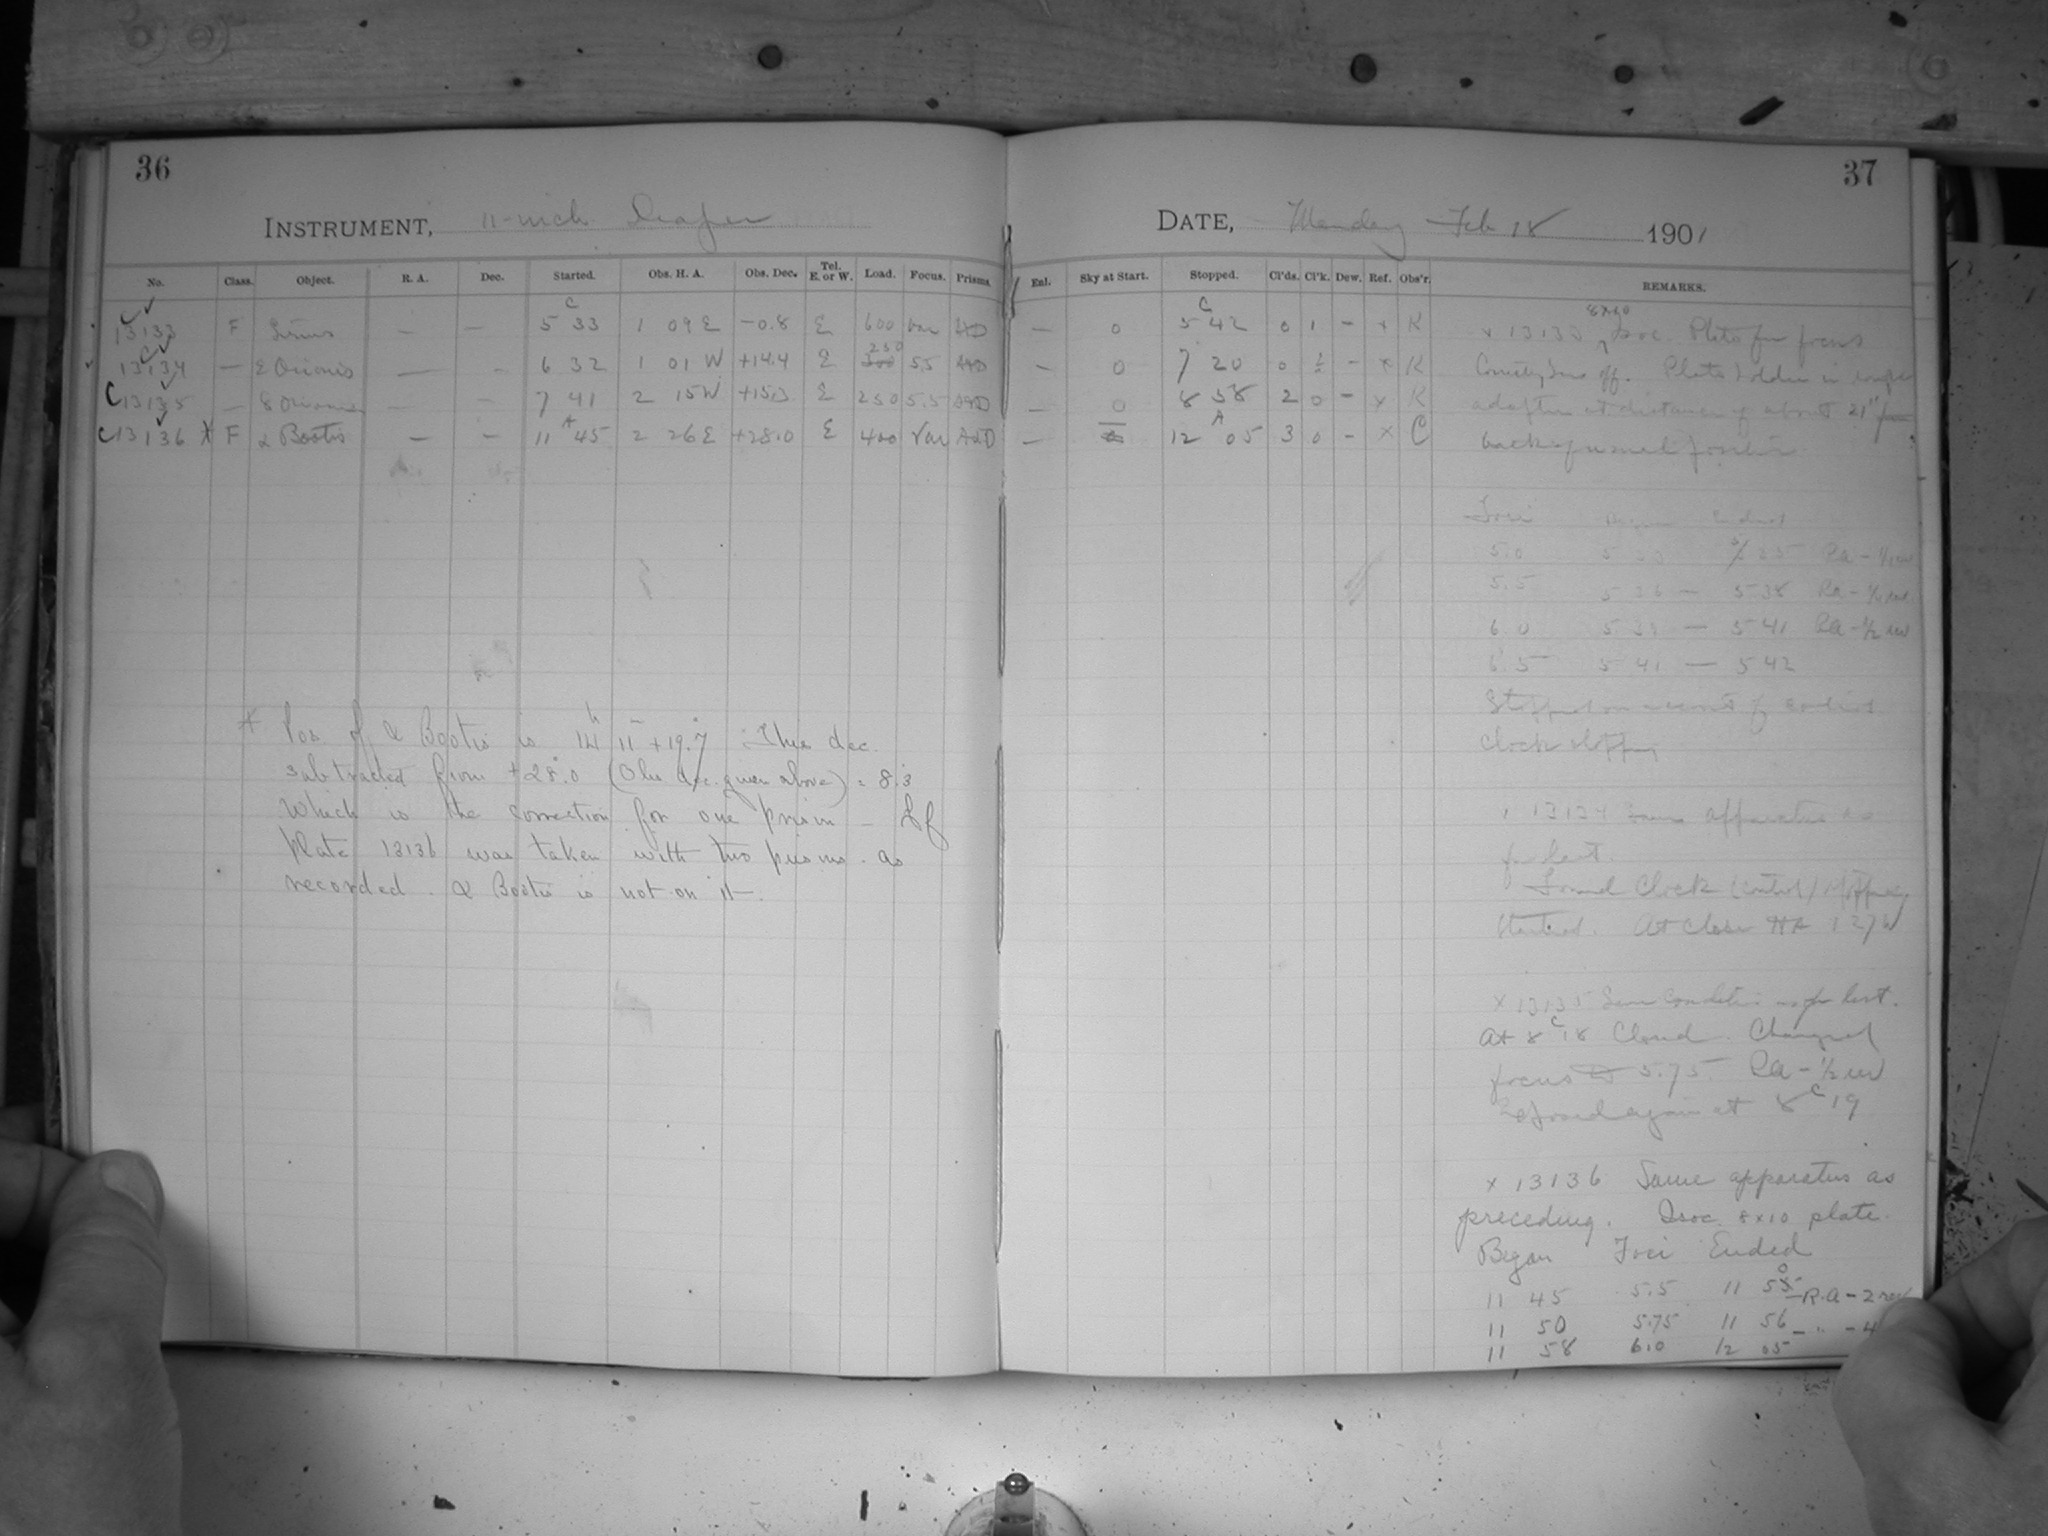 36
37
INSTRUMENT, 11-inch Draper
DATE, Monday Feb 18 1901
No. Class. Object. R. A. Dec. Started. Obs. H. A. Obs. Dec. Tel. E. or W. Load. Focus. Prisms.
Enl. Sky at Start. Stopped. Cl'ds. Cl'k. Dew. Ref. Obs'r. REMARKS.
13133 F Sirius — — 5 C 33 1 09 E -0.8 E 600 Var — 0 5 C 42 0 1 - x K
13134 — ε Orionis — - 6 32 1 01 W +14.4 E 250 5.5 - 0 7 20 0 - x K
C 13135 — Orionis - - 7 41 2 15 W E 250 5.5 — 0 8 58 2 0 - x K
C 13136 X F α Bootis — — 11 A 45 2 26 E +28.0 E 400 Var — 12 A 05 3 0 - x C
x 13133 8x10 Isoc. Plate for focus
off. Plate holder in
adapter at distance of about 21"
back of
Foci Began Ended
5.0 5 33 5 35 RA -
5.5 5 36 — 5 38 RA -
6.0 5 39 — 5 41 RA - 1/2 rev
6.5 5 41 — 5 42
Stopped on account of control
clock stopping
x 13134 same apparatus as
for last.
Found Clock (control) stopped
Started. At close HA 1 27 W
x 13135 Same conditions as for last.
At 8 C 18 Cloud. Changed
focus to 5.75. RA - 1/2 rev
Exposed again at 8 C 19
x 13136 Same apparatus as
preceding. Isoc. 8x10 plate.
Began Foci Ended
11 45 5.5 11 50 — R.A - 2 rev
11 50 5.75 11 56 — " - 4
11 58 6.0 12 05
* Pos. of α Bootis is 14h 11m +19°.7 This dec.
subtracted from +28°.0 (Obs dec. given above) = 8°.3
which is the correction for one prism — If
plate 13136 was taken with two prisms. as
recorded. α Bootis is not on it —.